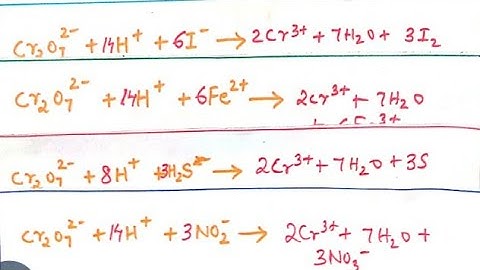 Cr₂O₇²⁻ + 14H⁺ + 6I⁻ → 2Cr³⁺ + 7H₂O + 3I₂
Cr₂O₇²⁻ + 14H⁺ + 6Fe²⁺ → 2Cr³⁺ + 7H₂O
Cr₂O₇²⁻ + 8H⁺ + 3H₂S → 2Cr³⁺ + 7H₂O + 3S
Cr₂O₇²⁻ + 14H⁺ + 3NO₂⁻ → 2Cr³⁺ + 7H₂O +
3NO₃⁻